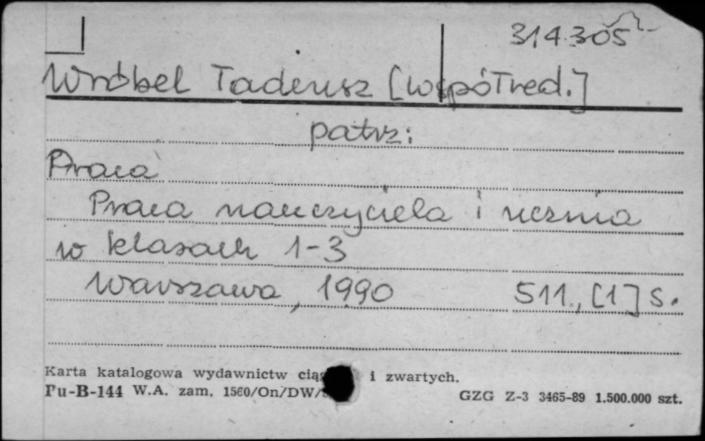 314305
Wróbel Tadeusz [współred.]
patrz:
Praca
Praca nauczyciela i ucznia
w klasach 1-3
Warszawa, 1990 511, [1] s.
Karta katalogowa wydawnictw i zwartych.
Pu-B-144 W.A. zam. 1560/On/DW/ GZG Z-3 3465-89 1.500.000 szt.